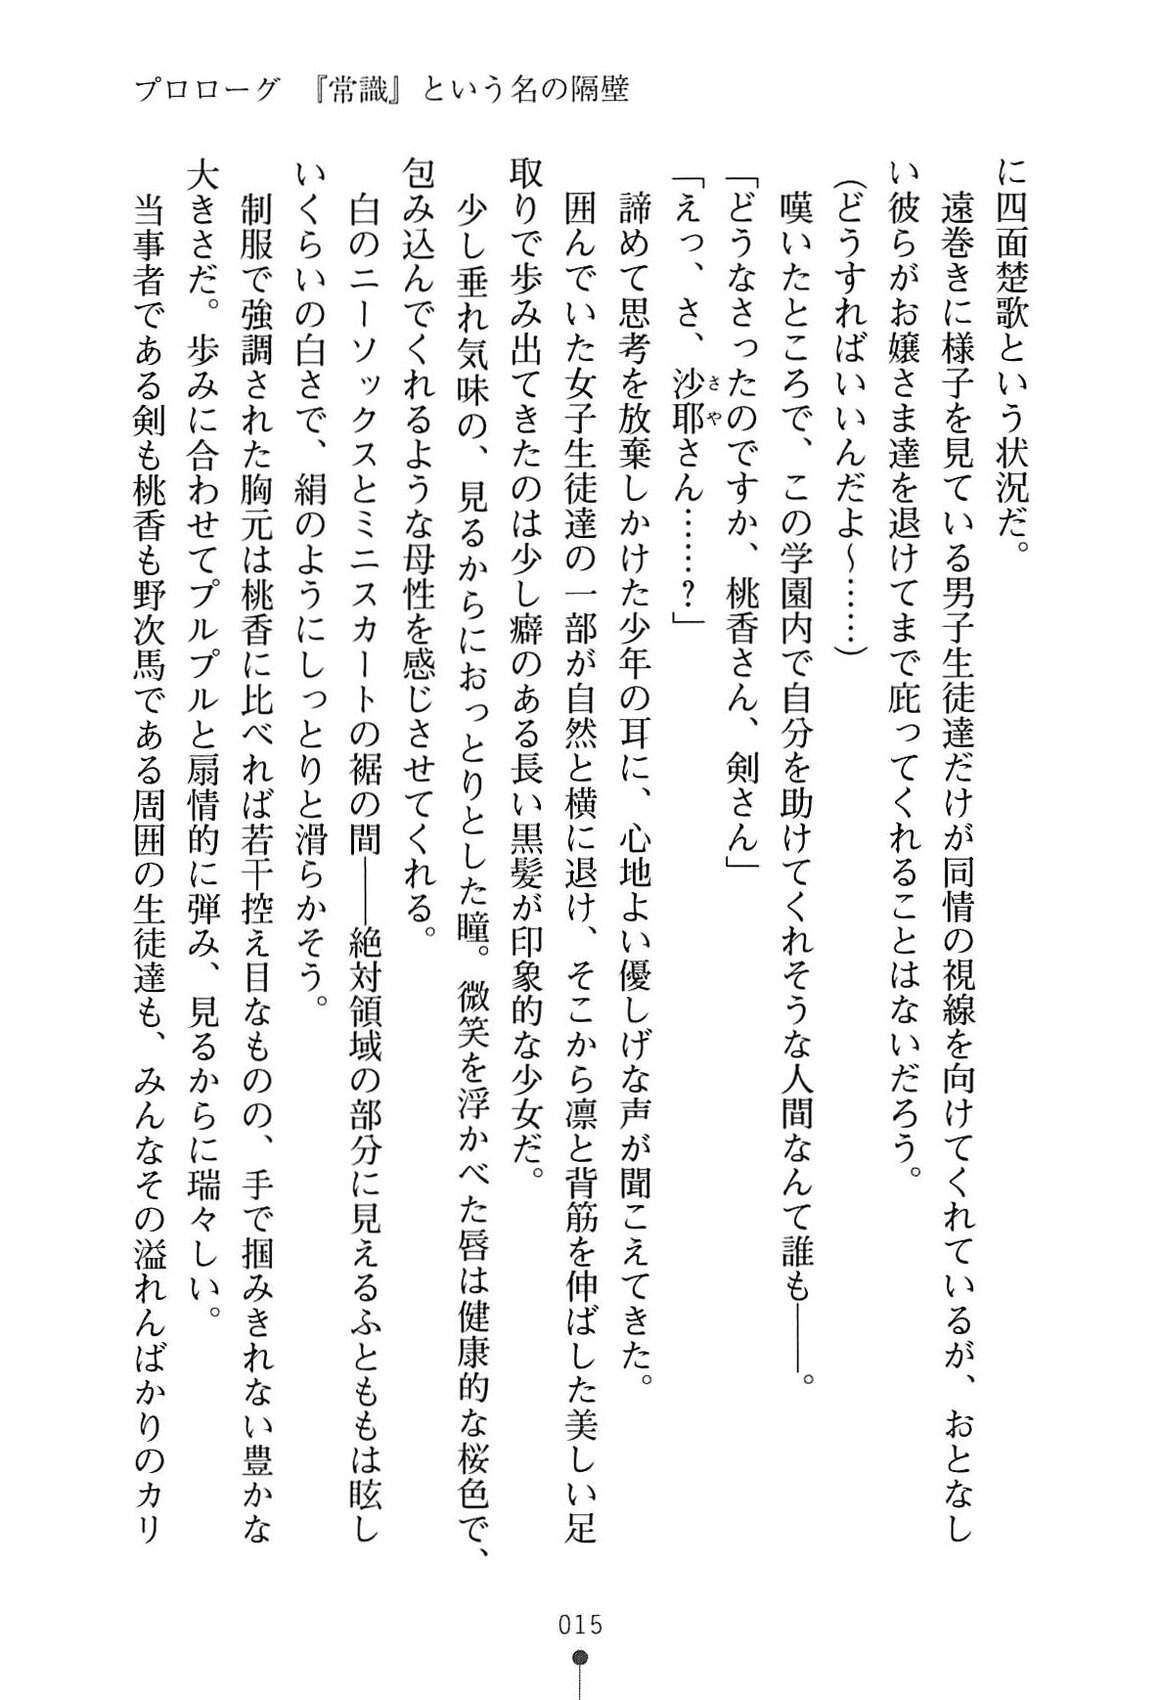 プロローグ　『常識』という名の隔壁
に四面楚歌という状況だ。
　遠巻きに様子を見ている男子生徒達だけが同情の視線を向けてくれているが、おとなし
い彼らがお嬢さま達を退けてまで庇ってくれることはないだろう。
（どうすればいいんだよ～……）
　嘆いたところで、この学園内で自分を助けてくれそうな人間なんて誰も――。
「どうなさったのですか、桃香さん、剣さん」
「えっ、さ、沙耶さん……？」
　諦めて思考を放棄しかけた少年の耳に、心地よい優しげな声が聞こえてきた。
　囲んでいた女子生徒達の一部が自然と横に退け、そこから凛と背筋を伸ばした美しい足
取りで歩み出てきたのは少し癖のある長い黒髪が印象的な少女だ。
　少し垂れ気味の、見るからにおっとりとした瞳。微笑を浮かべた唇は健康的な桜色で、
包み込んでくれるような母性を感じさせてくれる。
　白のニーソックスとミニスカートの裾の間――絶対領域の部分に見えるふとももは眩し
いくらいの白さで、絹のようにしっとりと滑らかそう。
　制服で強調された胸元は桃香に比べれば若干控え目なものの、手で掴みきれない豊かな
大きさだ。歩みに合わせてプルプルと扇情的に弾み、見るからに瑞々しい。
　当事者である剣も桃香も野次馬である周囲の生徒達も、みんなその溢れんばかりのカリ
015